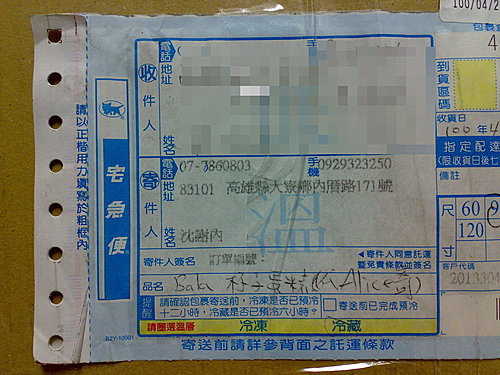 100/04/2
收件人
電話
地址
姓名
請以正楷用力填寫於粗框內
宅急便
寄件人
電話
07-3860803
手機
0929323250
地址
83101 高雄縣大寮鄉內厝路171號
姓名
沈謝內
寄件人簽名
訂單編號:
◀寄件人同意託運暨免責條款並簽名
品名
提醒
請確認包裹寄送前,冷凍是否已預冷
十二小時,冷藏是否已預冷六小時?
寄送前已完成預冷
請圈選溫層
冷凍
冷藏
B2Y-10001
寄送前請詳參背面之託運條款
到貨區碼
收貨日
100年4
指定配達
(限收貨日後七
備註
尺寸
60
120
客戶代碼
2013304